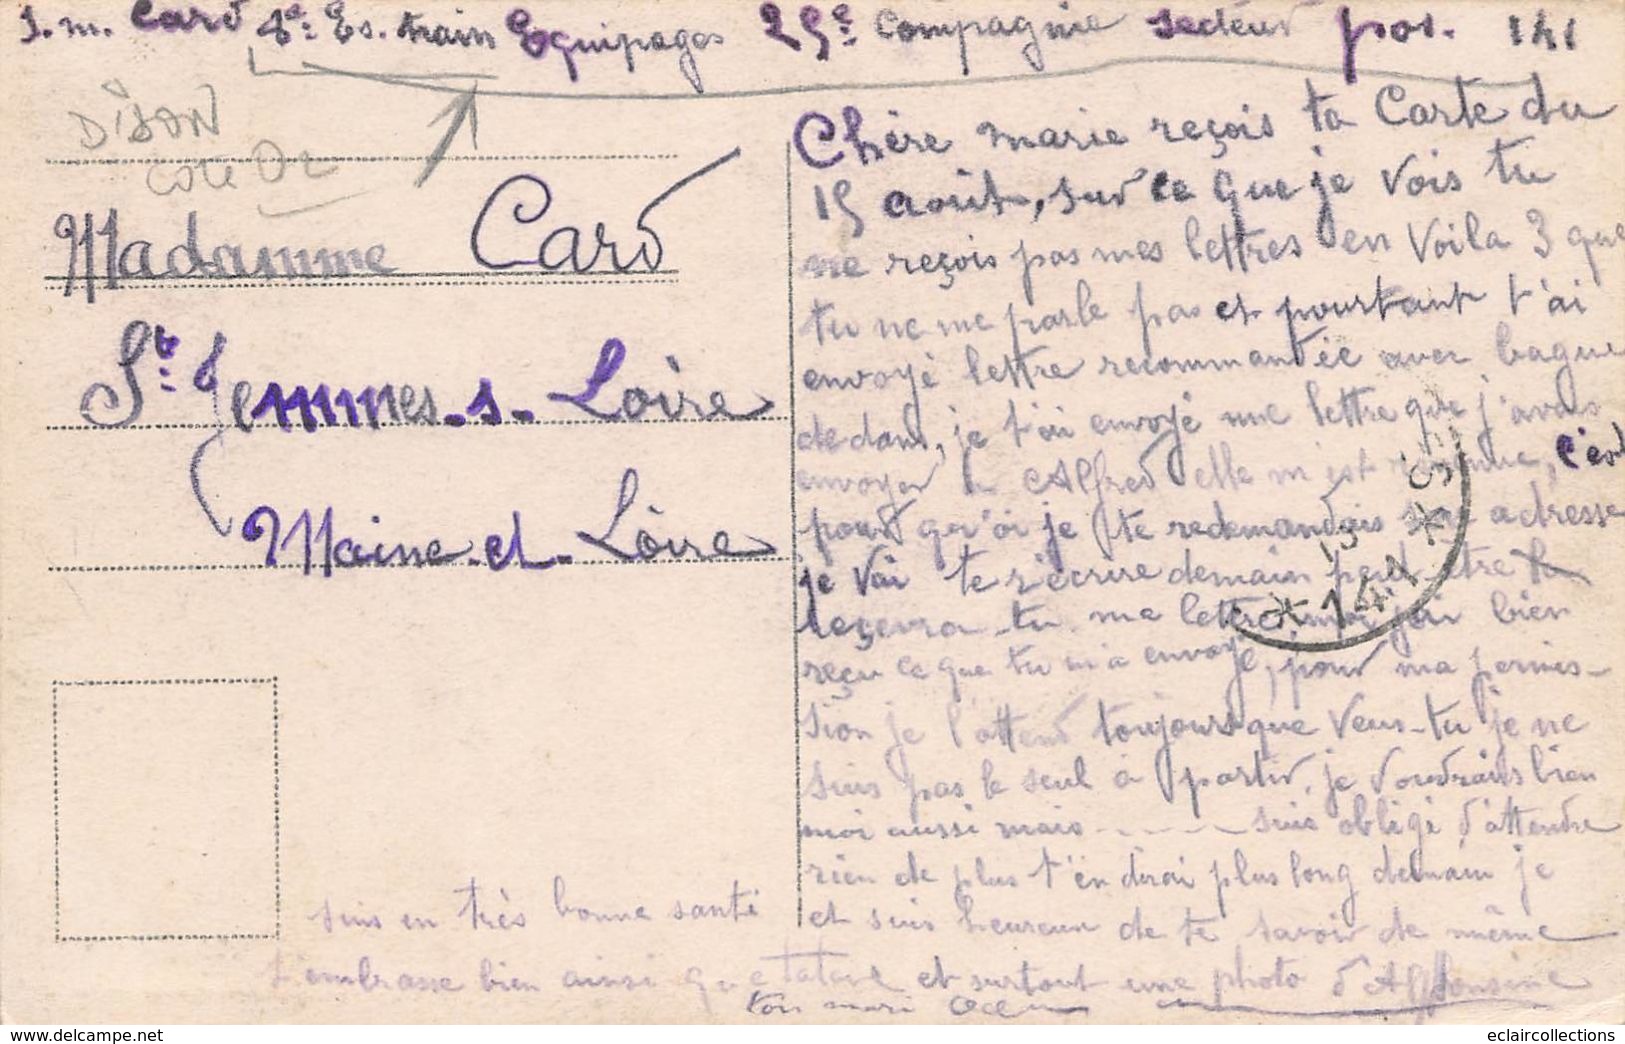 J. m. Caro 8e Es. train Equipages 25e Compagnie secteur pos. 141
Dijon
cote Or
Madamme Caro
St Jemmes-s-Loire
Maine-et-Loire
Chère marie reçois ta Carte du
15 août, sur ce que je vois tu
ne reçois pas mes lettres en Voila 3 que
tu ne me parle pas et pourtant t'ai
envoyé lettre recommandée avec bague
dedans, je t'ai envoyé une lettre que j'avais
envoyer a Alfred elle m'est revenue, c'est
pour qu'oi je te redemandais son adresse
je vai te r'écrire demain peut-être
reçevra-tu me lettre moi j'ai bien
reçu ce que tu m'a envoyé, pour ma permis-
sion je l'attend toujours que veus-tu je ne
suis pas le seul à partir, je voudrais bien
moi aussi mais ---- suis obligé d'attendre
rien de plus t'en dirai plus long demain je
et suis heureux de te savoir de même
suis en très bonne santé
t'embrasse bien ainsi que tatave et surtout une photo d'Alphonsine
ton mari
141
eclaircollections